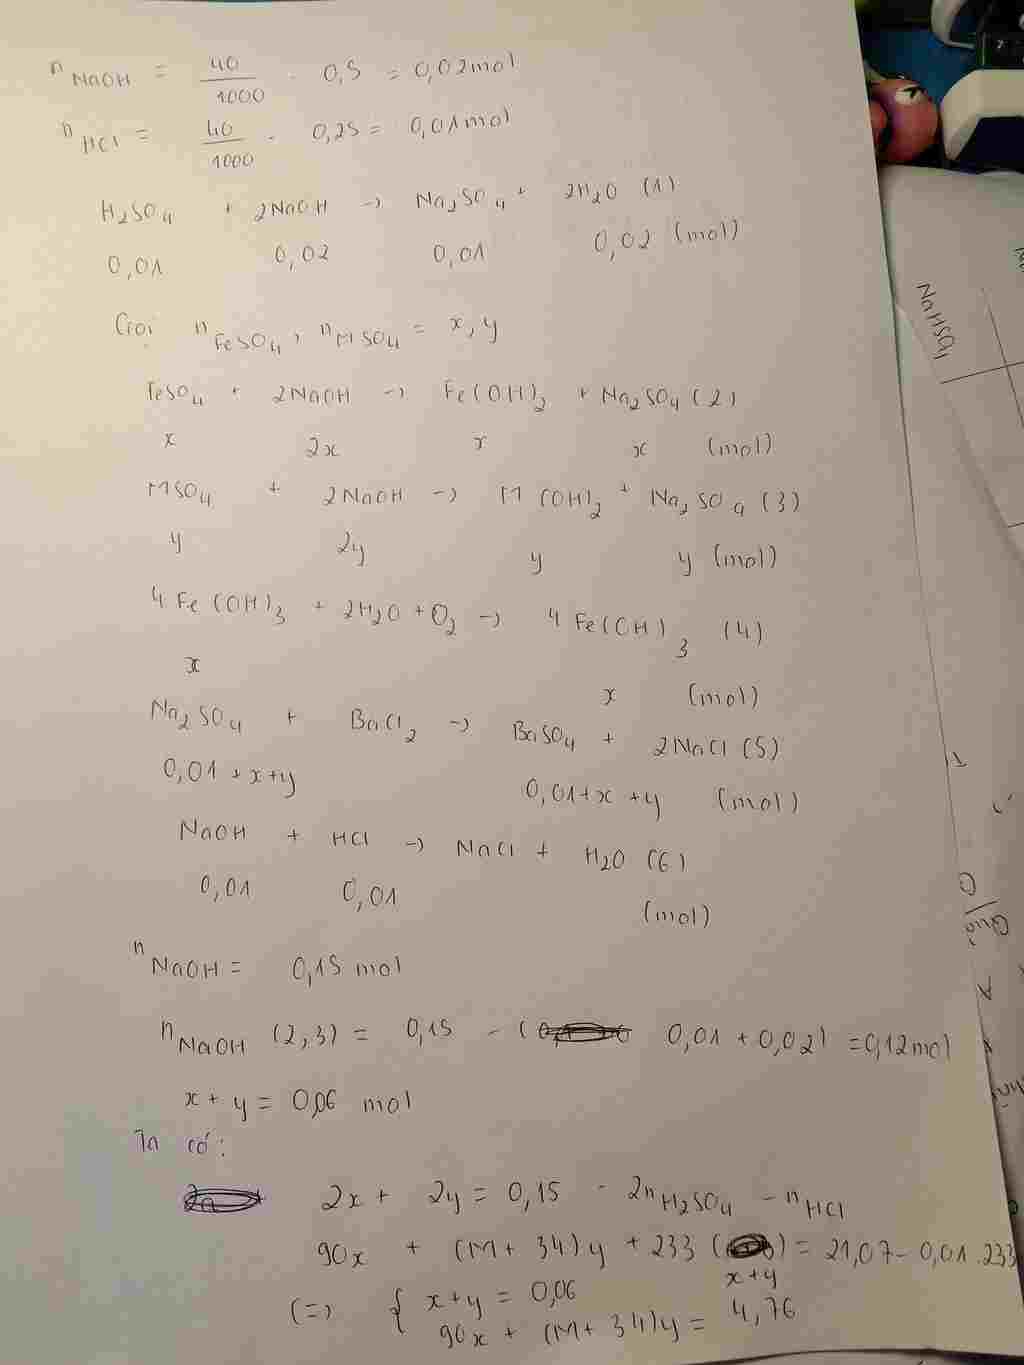 n NaOH = 40/1000 . 0,5 = 0,02mol
n HCl = 40/1000 . 0,25 = 0,01mol
H₂SO₄ + 2NaOH → Na₂SO₄ + 2H₂O (1)
0,01 0,02 0,01 0,02 (mol)
Gọi n FeSO₄, n MSO₄ = x, y
FeSO₄ + 2NaOH → Fe(OH)₂ + Na₂SO₄ (2)
x 2x x x (mol)
MSO₄ + 2NaOH → M(OH)₂ + Na₂SO₄ (3)
y 2y y y (mol)
4Fe(OH)₃ + 2H₂O + O₂ → 4Fe(OH)₃ (4)
x x (mol)
Na₂SO₄ + BaCl₂ → BaSO₄ + 2NaCl (5)
0,01 + x + y 0,01 + x + y (mol)
NaOH + HCl → NaCl + H₂O (6)
0,01 0,01 (mol)
n NaOH = 0,15 mol
n NaOH (2,3) = 0,15 - ( 0,01 + 0,02) = 0,12mol
x + y = 0,06 mol
Ta có:
2x + 2y = 0,15 - 2n H₂SO₄ - n HCl
90x + (M + 34)y + 233 (x+y) = 21,07 - 0,01 . 233
(=) { x + y = 0,06
90x + (M + 34)y = 4,76
NaHSO₄